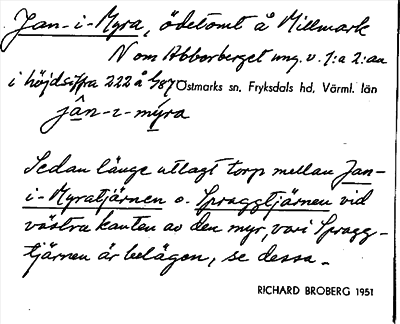 Jan-i-Myra, ödetomt å Millmark
N om Abborberget ung. v. 1:a 2:an
i höjdsiffra 222 å 487 Östmarks sn. Fryksdals hd, Värml. län
jân-ɩ-mýra
Sedan länge utlagt torp mellan Jan-
i-Myratjärnen o. Spraggtjärnen vid
västra kanten av den myr, vari Spragg-
tjärnen är belägen, se dessa.
RICHARD BROBERG 1951